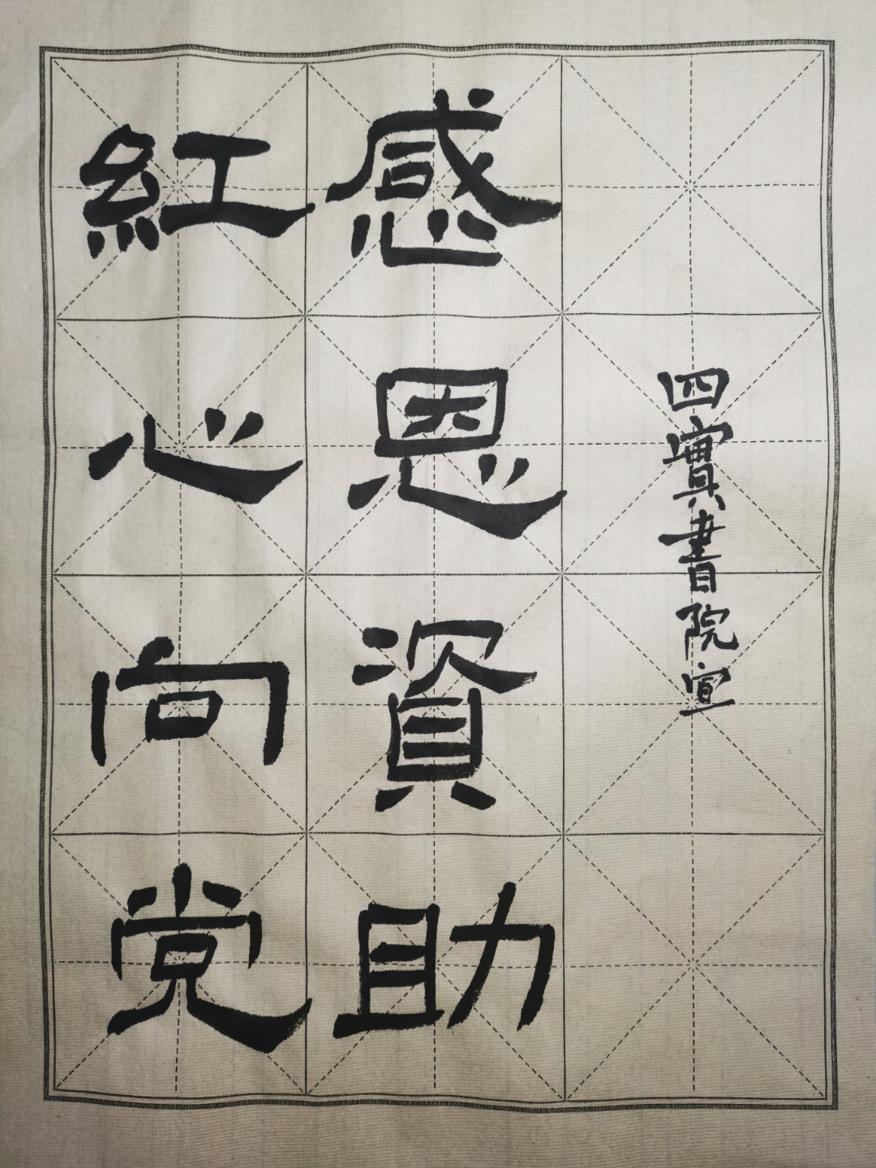 紅心向党
感恩資助
四實書院宣